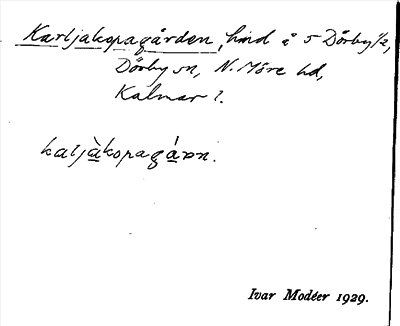 Karljakopagården, hmd å 5 Dörby 1/2,
Dörby sn, N. Möre hd,
Kalmar l.
kaljàkopagáɒn.
Ivar Modéer 1929.